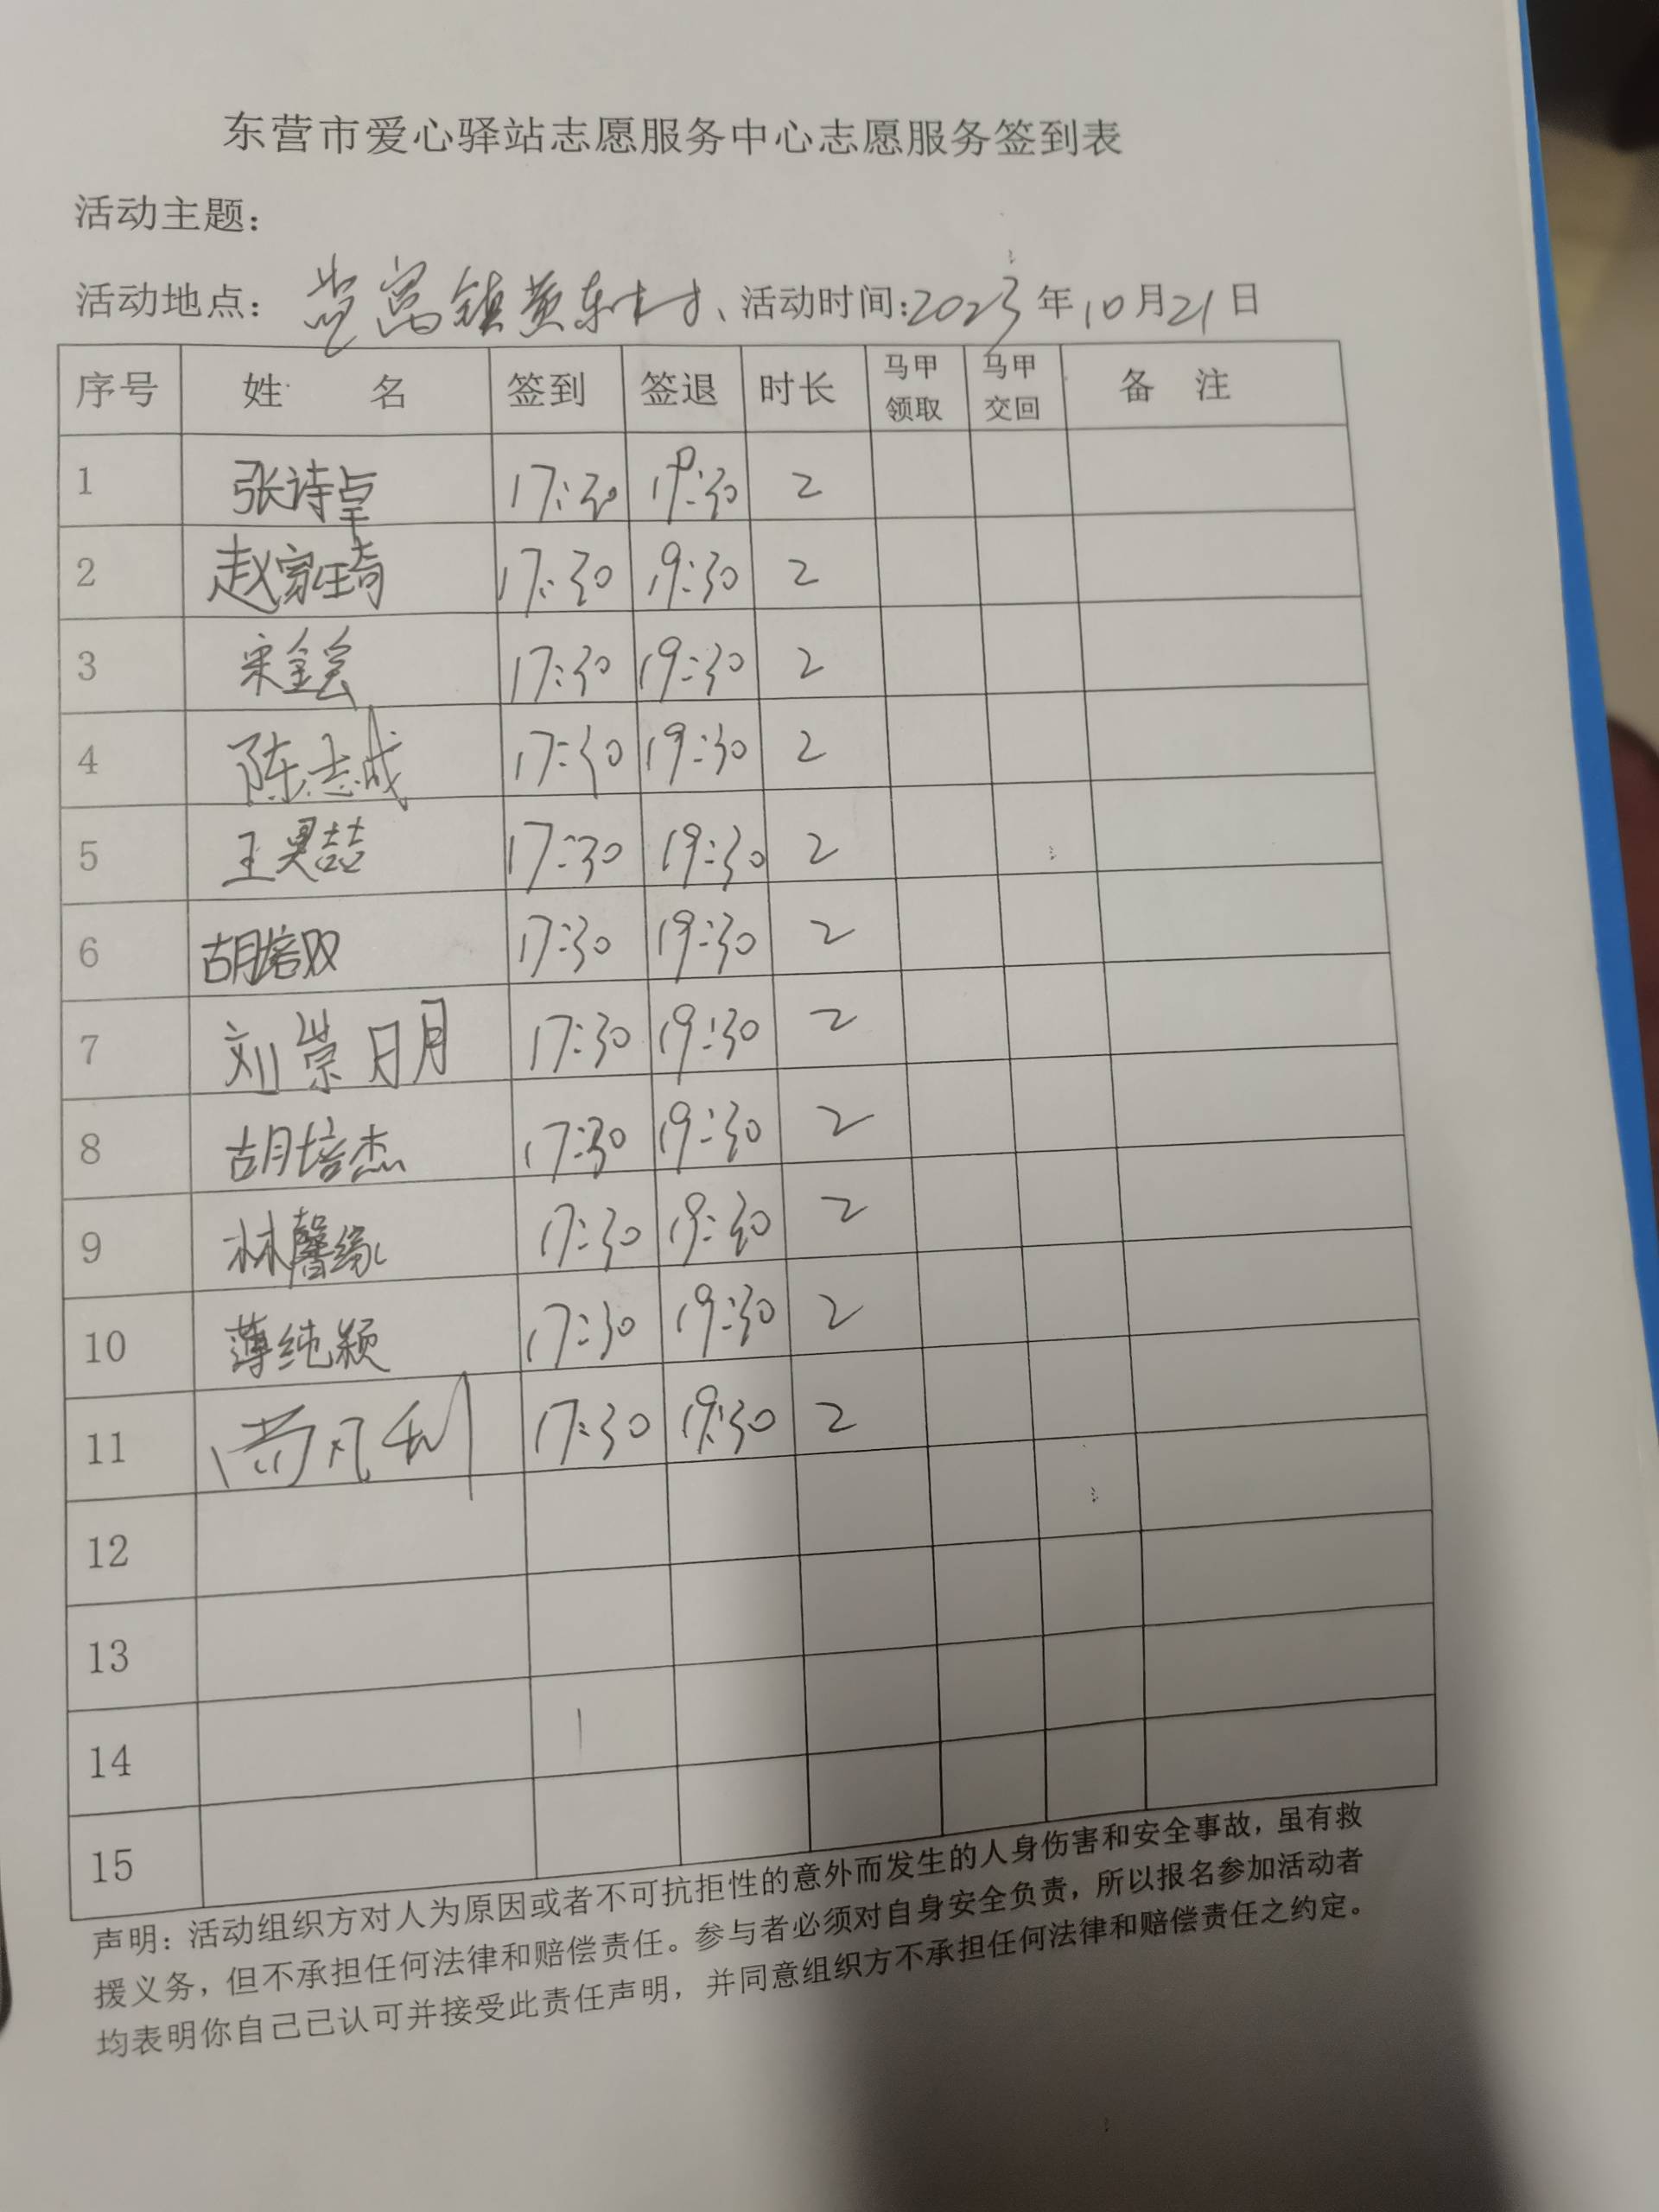 东营市爱心驿站志愿服务中心志愿服务签到表
活动主题：
活动地点： 盐窝镇黄东村、活动时间:2023年10月21日
序号 姓 名 签到 签退 时长 马甲领取 马甲交回 备 注
1 张诗卓 17:30 19:30 2
2 赵家琦 17:30 19:30 2
3 宋金会 17:30 19:30 2
4 陈志成 17:30 19:30 2
5 王昊喆 17:30 19:30 2
6 胡培双 17:30 19:30 2
7 刘崇明 17:30 19:30 2
8 胡培杰 17:30 19:30 2
9 林馨缘 17:30 19:30 2
10 薄纯颖 17:30 19:30 2
11 尚凡利 17:30 19:30 2
12
13
14
15
声明：活动组织方对人为原因或者不可抗拒性的意外而发生的人身伤害和安全事故，虽有救
援义务，但不承担任何法律和赔偿责任。参与者必须对自身安全负责，所以报名参加活动者
均表明你自己己认可并接受此责任声明，并同意组织方不承担任何法律和赔偿责任之约定。